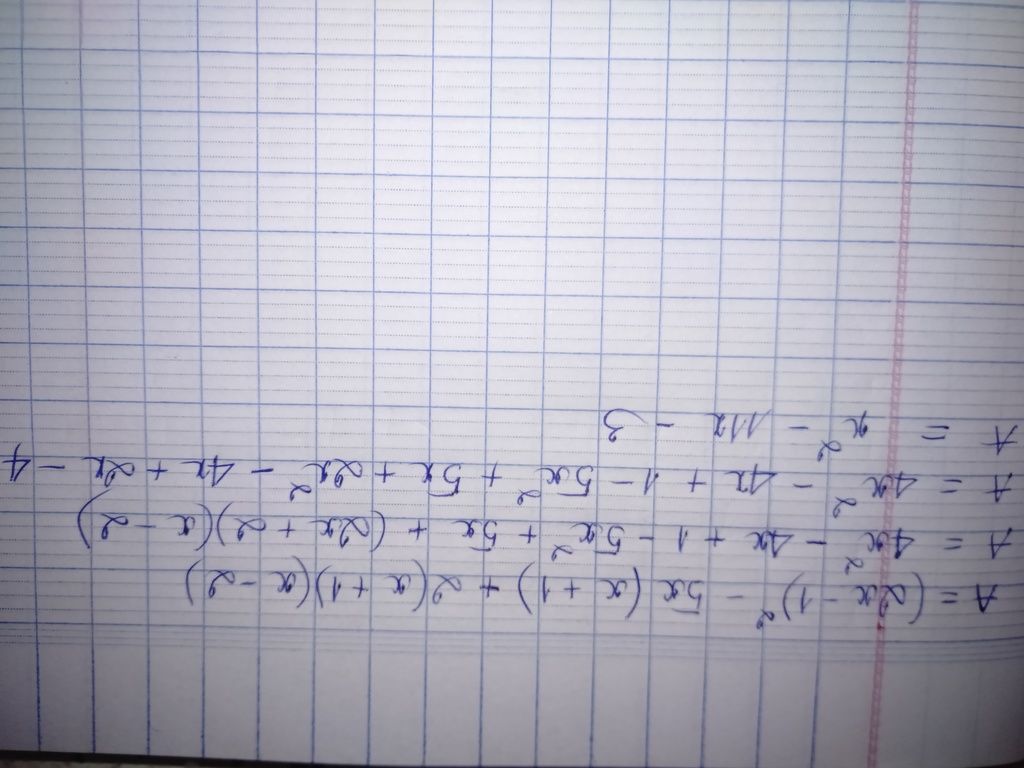 A = (2x - 1)² - 5x (x + 1) + 2(x + 1)(x - 2)
A = 4x² - 4x + 1 - 5x² + 5x + (2x + 2)(x - 2)
A = 4x² - 4x + 1 - 5x² + 5x + 2x² - 4x + 2x - 4
A = x² - 11x - 3